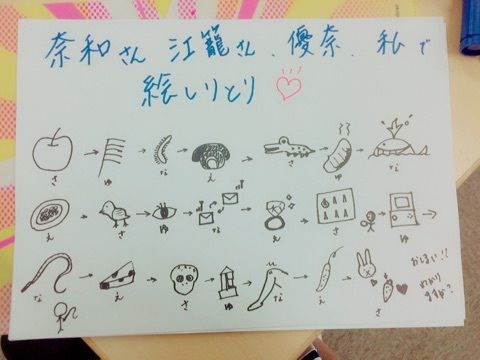 奈和さん 江籠さん、優奈、私で
絵しりとり
さ ゆ な え さ ゆ な
え さ ゆ な え さ ゆ
な え さ ゆ な え さ
かわいい!!
わかり
ますか?